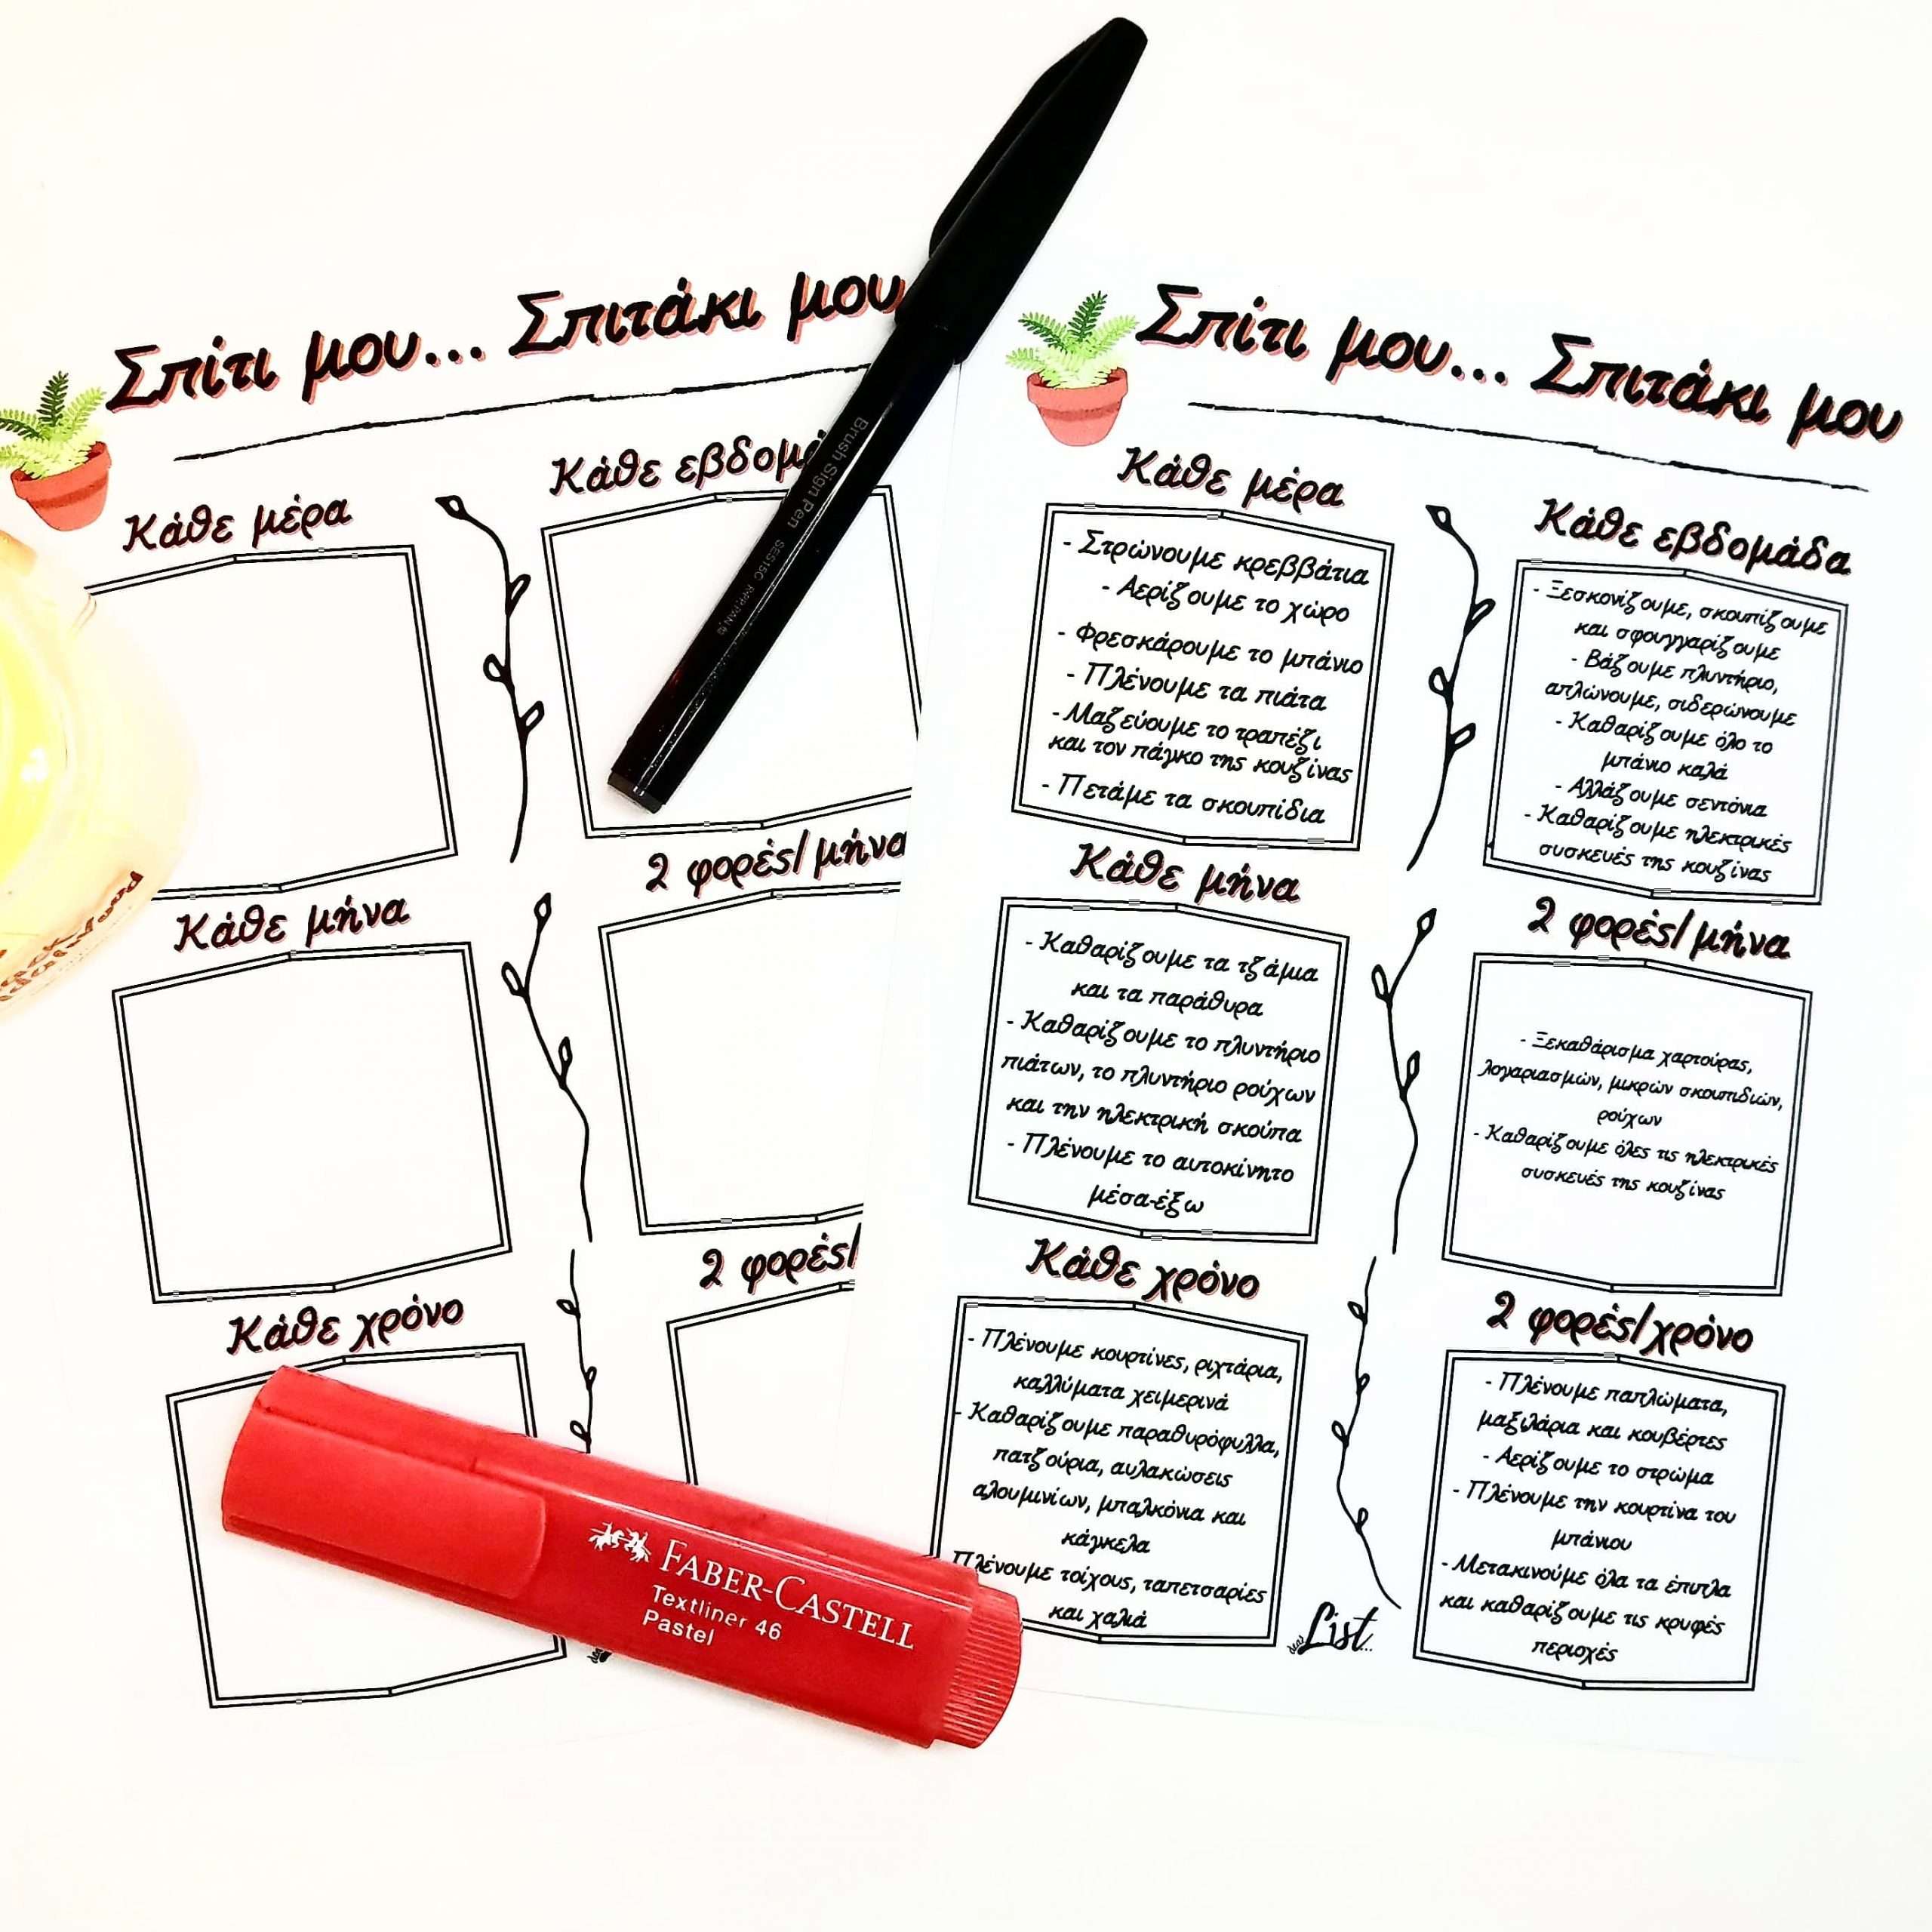 Σπίτι μου... Σπιτάκι μου
Κάθε μέρα
Κάθε
Κάθε μήνα
2 φορές/μήνα
Κάθε χρόνο
2 φορές/
Brush Sign Pen SES15C
FABER-CASTELL
Textliner 46
Pastel
Σπίτι μου... Σπιτάκι μου
Κάθε μέρα
- Στρώνουμε κρεββάτια
- Αερίζουμε το χώρο
- Φρεσκάρουμε το μπάνιο
- Πλένουμε τα πιάτα
- Μαζεύουμε το τραπέζι
και τον πάγκο της κουζίνας
- Πετάμε τα σκουπίδια
Κάθε εβδομάδα
- Ξεσκονίζουμε, σκουπίζουμε
και σφουγγαρίζουμε
- Βάζουμε πλυντήριο,
απλώνουμε, σιδερώνουμε
- Καθαρίζουμε όλο το
μπάνιο καλά
- Αλλάζουμε σεντόνια
- Καθαρίζουμε ηλεκτρικές
συσκευές της κουζίνας
Κάθε μήνα
- Καθαρίζουμε τα τζάμια
και τα παράθυρα
- Καθαρίζουμε το πλυντήριο
πιάτων, το πλυντήριο ρούχων
και την ηλεκτρική σκούπα
- Πλένουμε το αυτοκίνητο
μέσα-έξω
2 φορές/μήνα
- Ξεκαθάρισμα χαρτούρας,
λογαριασμών, μικρών σκουπιδιών,
ρούχων
- Καθαρίζουμε όλες τις ηλεκτρικές
συσκευές της κουζίνας
Κάθε χρόνο
- Πλένουμε κουρτίνες, ριχτάρια,
καλλύματα χειμερινά
- Καθαρίζουμε παραθυρόφυλλα,
πατζούρια, αυλακώσεις
αλουμινίων, μπαλκόνια και
κάγκελα
Πλένουμε τοίχους, ταπετσαρίες
και χαλιά
2 φορές/χρόνο
- Πλένουμε παπλώματα,
μαξιλάρια και κουβέρτες
- Αερίζουμε το στρώμα
- Πλένουμε την κουρτίνα του
μπάνιου
- Μετακινούμε όλα τα έπιπλα
και καθαρίζουμε τις κρυφές
περιοχές
List...